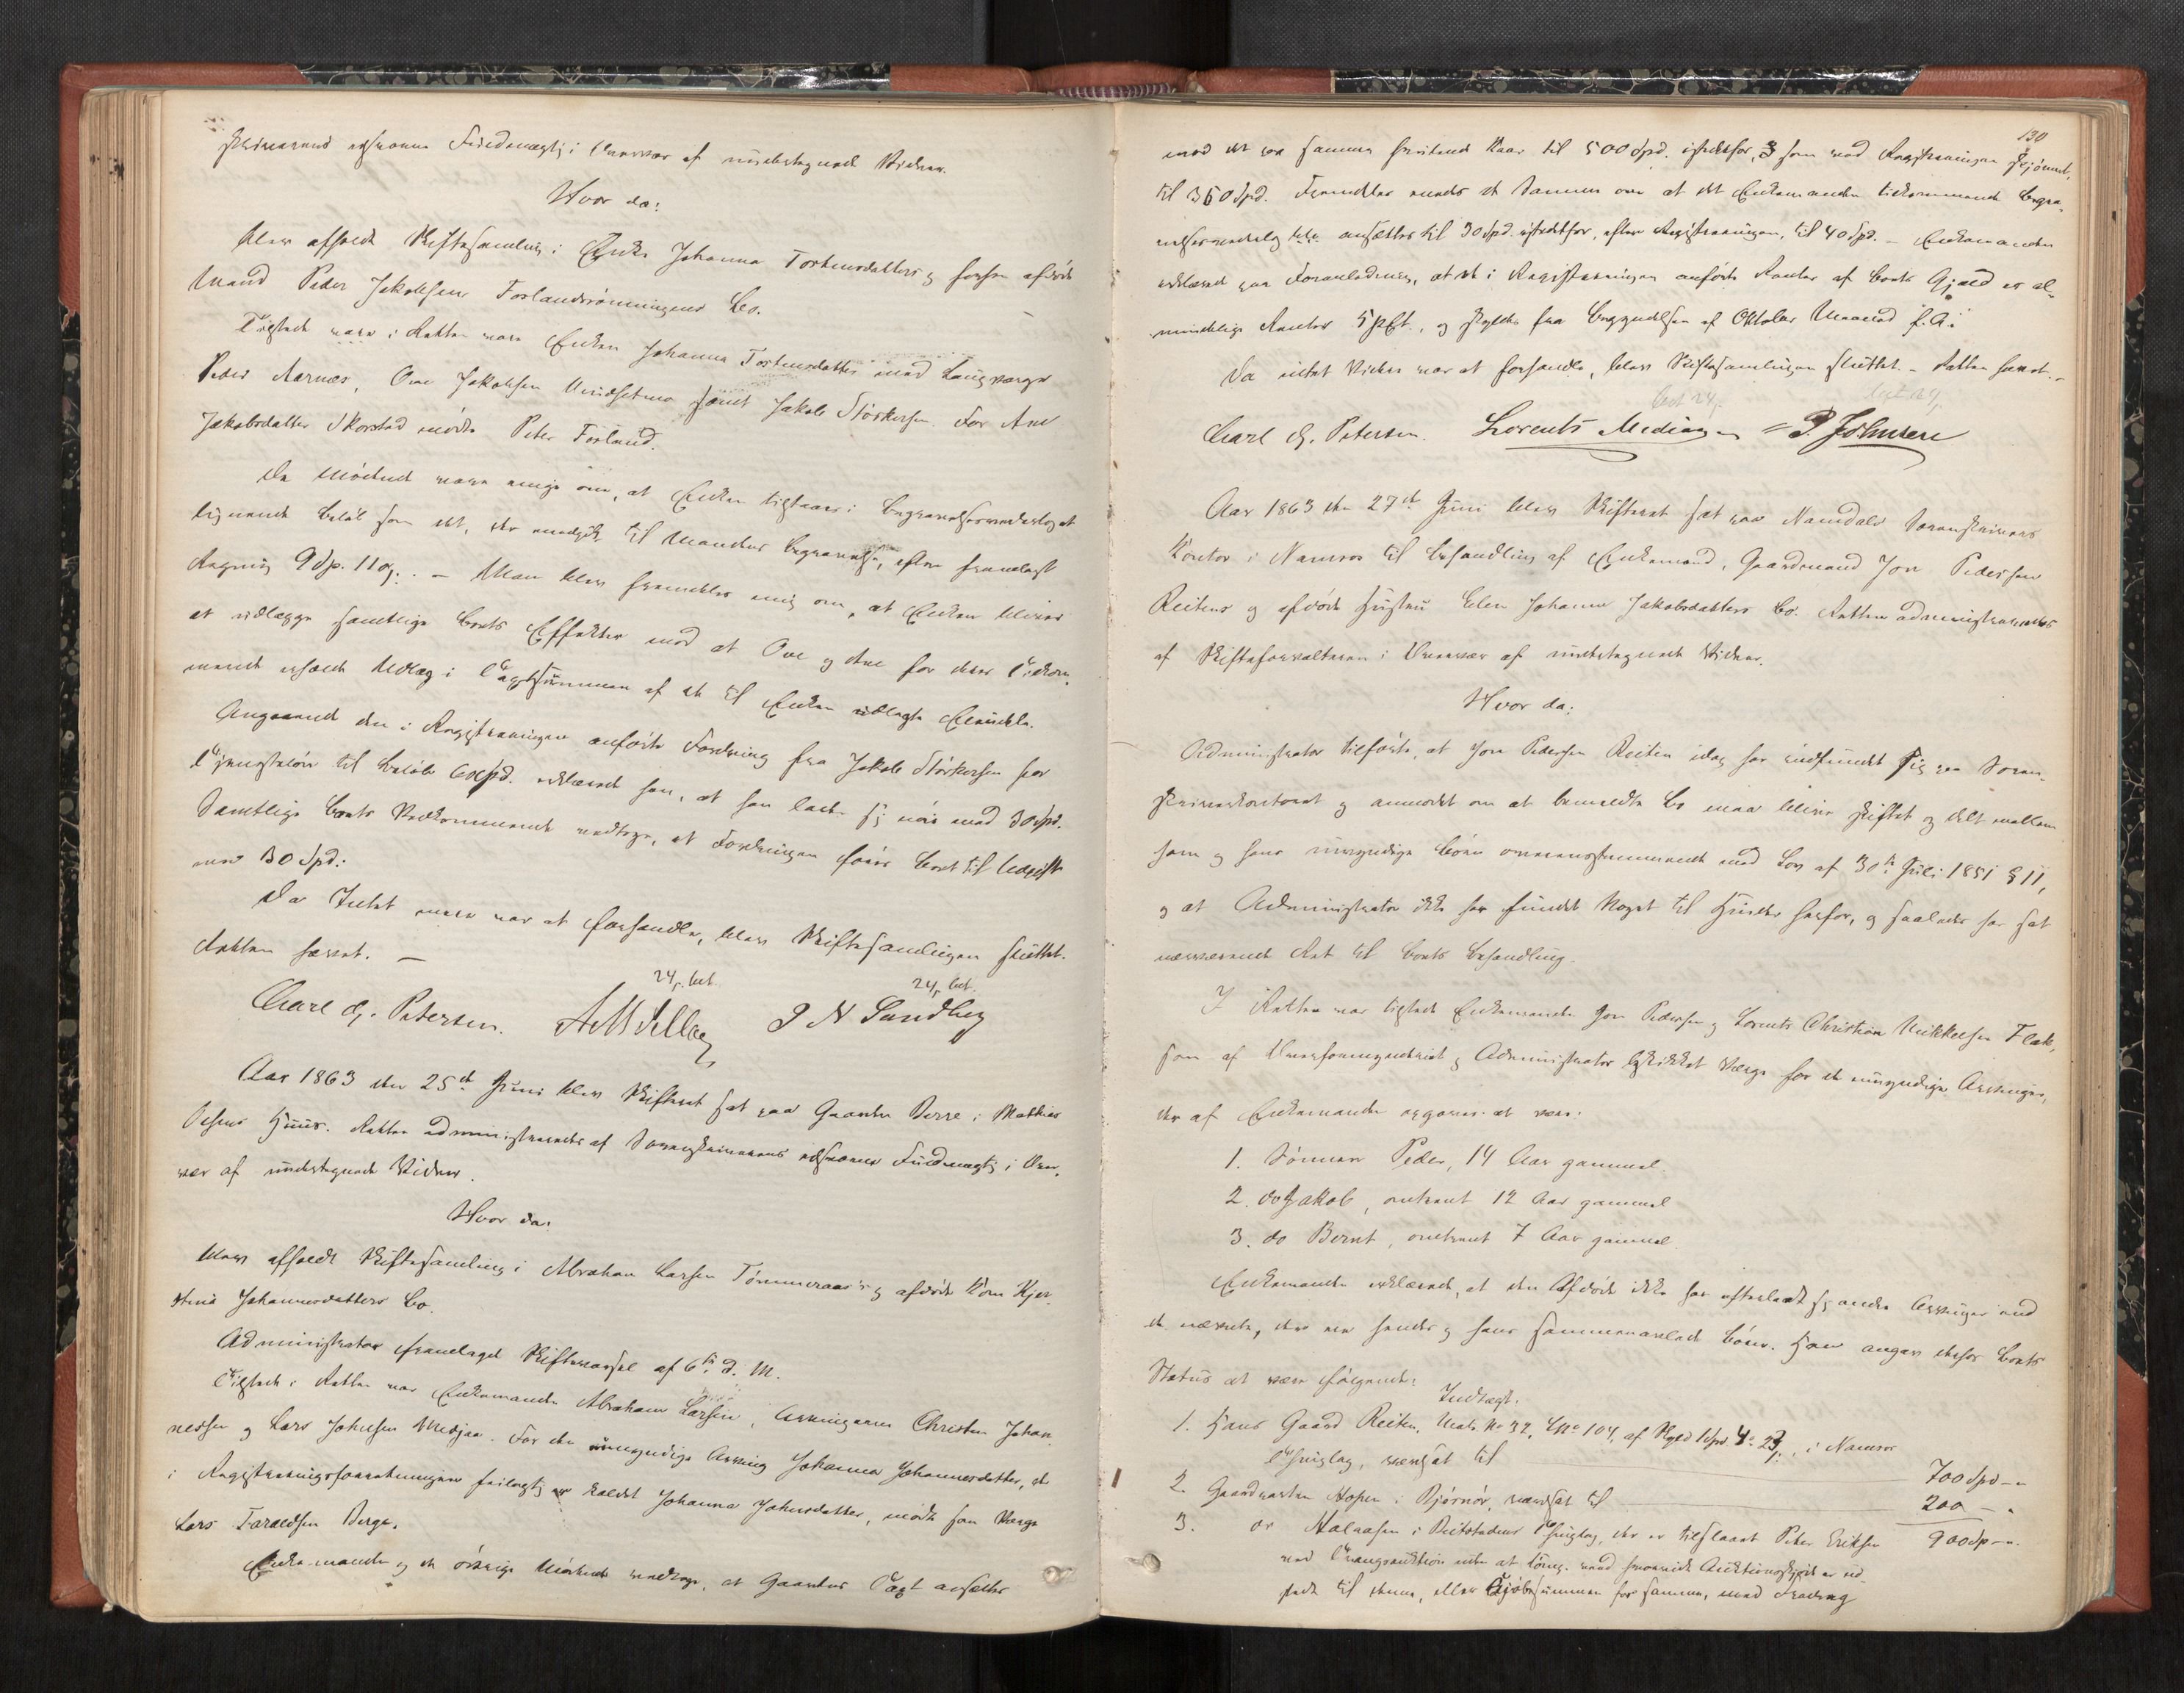 skriverens edsvorne Fuldmægtig i Overvær af undertegnede Vidner.
Hvor da:
blev afholdt Skiftesamling i Enke Johanna Torstensdatters og hendes afdøde
Mand Peder Jakobsens Forlandsrønningens Bo.
Tilstede vare i Retten vare Enken Johanna Torstensdatter med Laugværge
Peder Aarnes, Ove Jakobsen samt Jakob Størkersen. For Ane
Jakobsdatter Skorstad mødte Peter Forland.
De Mødende vare enige om, at Enken tilstaaes i Begravelsesvederlag et
lignende Beløb som det, der medgik til Mandens Begravelse, efter fremlagt
Regning 9 Sp. 110 s. – Man blev fremdeles enig om, at Enken bliver
at udlægge samtlige Boets Effekter mod at Ove og Ane for deres Tilkom-
mende erholde Udlæg i Taxtsummen af de til Enken udlagte Eiendele.
Angaaende den i Registreringen anførte Fordring fra Jakob Størkersen for
Tjenesteløn til Beløb 60 Spd. erklærede han, at han lader sig nøie med 30 Spd.
Samtlige Boets Vedkommende vedtoge, at Fordringen føres Boet til Udgift
med 30 Spd.
Da Intet mere var at forhandle, blev Skiftesamlingen sluttet.
Retten hævet. –
24 s. bet. 24 s. bet.
Carl G. Petersen. P N Sandberg
Aar 1863 den 25de Juni blev Skifteret sat paa Gaarden Berre i Mathias
Olsens Huus. Retten administreredes af Sorenskriverens edsvorne Fuldmægtig i Over-
vær af undertegnede Vidner.
Hvor da:
blev afholdt Skiftesamling i Abraham Larsen Tømmeraas's og afdøde Kone Kjer-
stina Johannesdatters Bo.
Administrator fremlagde Skiftevarsel af 6te d. M.
Tilstede i Retten var Enkemanden Abraham Larsen, Arvingerne Christen Johan-
nessen og Lars Johnsen Medjaa. For den umyndige Arving Johanna Johannesdatter, der
i Registreringsforretningen feilagtig er kaldet Johanna Johnsdatter, mødte som Værge
Lars Haraldsen Berge.
Enkemanden og de øvrige Mødende vedtoge, at Gaardens Taxt ansættes
130
med det paa samme heftende Kaar til 500 Spd. istedetfor, som ved Registreringen skjønnet,
til 360 Spd. Fremdeles enedes de Samme om at det Enkemanden tilkommende Begra-
velsesvederlag ansættes til 30 Spd. istedetfor, efter Registreringen, til 40 Spd. – Enkemanden
erklærede paa Foranledning, at de i Registreringen anførte Renter af Boets Gjæld er al-
mindelige Renter 5 pCt., og skyldes fra Begyndelsen af Oktober Maaned f. A.
Da intet Videre var at forhandle, blev Skiftesamlingen sluttet. – Retten hævet. –
bet 24 s. bet 24 s.
Carl G. Petersen. Lorents Mediaa P. Johnsen
Aar 1863 den 27de Juni blev Skifteret sat paa Namdals Sorenskrivers
Kontor i Namsos til Behandling af Enkemand, Gaardmand Jon Pedersen
Reitens og afdøde Hustru Elen Johanna Jakobsdatters Bo. Retten administreredes
af Skifteforvalteren i Overvær af undertegnede Vidner.
Hvor da:
Administrator tilførte, at Jon Pedersen Reiten idag har indfundet sig paa Soren-
skriverkontoret og anmodet om at bemeldte Bo maa blive skiftet og delt mellem
ham og hans umyndige Børn overensstemmende med Lov af 30te Juli 1851 § 11,
og at Administrator ikke har fundet Noget til Hinder herfor, og saaledes har sat
nærværende Ret til Boets Behandling.
I Retten var tilstede Enkemanden Jon Pedersen og Lorents Christian Mikkelsen Flak,
som af Overformynderiet og Administrator beskikket Værge for de umyndige Arvinger,
der af Enkemanden opgaves at være:
1. Sønnen Peder, 14 Aar gammel.
2. do Jakob, omtrent 12 Aar gammel
3. do Bernt, omtrent 7 Aar gammel.
Enkemanden erklærede, at den Afdøde ikke har efterladt sig andre Arvinger end
de nævnte, der ere hendes og hans sammenavlede Børn. Han angav derfor Boets
Status at være følgende:
Indtægt.
1. Hans Gaard Reiten, Matr. No 32, L No 104, af Skyld 1 Spd 4 o 23 s., i Namsos
Thinglag, værdsat til 700 Spd - "
2. Gaardparten Hopen i Bjørnør, værdsat til 200 - "
3. do Halaasen i Beitstadens Thinglag, der er tilslaaet Peter Eriksen 900 Sp - ".
ved Tvangsauktion uden at tinglyst Auktionsskjøde er ud-
stedt til denne, eller Kjøbesummen for samme, med Fradrag